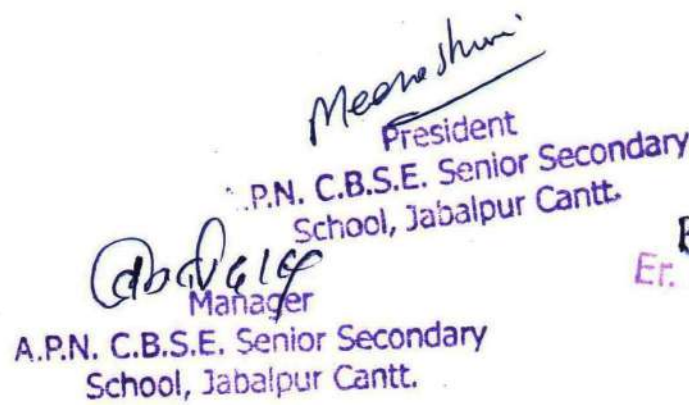 President
.P.N. C.B.S.E. Senior Secondary
School, Jabalpur Cantt.
Er.
Manager
A.P.N. C.B.S.E. Senior Secondary
School, Jabalpur Cantt.